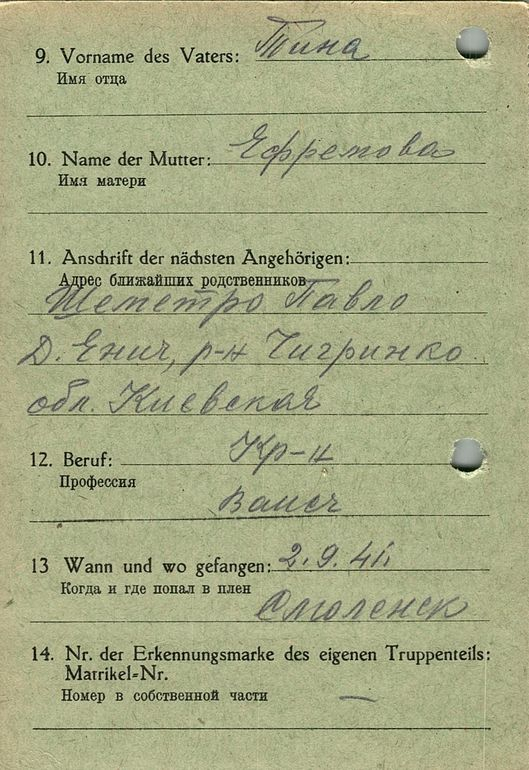 9. Vorname des Vaters: Тина
Имя отца
10. Name der Mutter: Ефремова
Имя матери
11. Anschrift der nächsten Angehörigen:
Адрес ближайших родственников
Шеметро Павло
Д. Енич, р-н Чигринко.
обл. Киевская
12. Beruf: Кр-н
Профессия
13 Wann und wo gefangen: 2.9.41.
Когда и где попал в плен
Смоленск
14. Nr. der Erkennungsmarke des eigenen Truppenteils:
Matrikel-Nr.
Номер в собственной части —